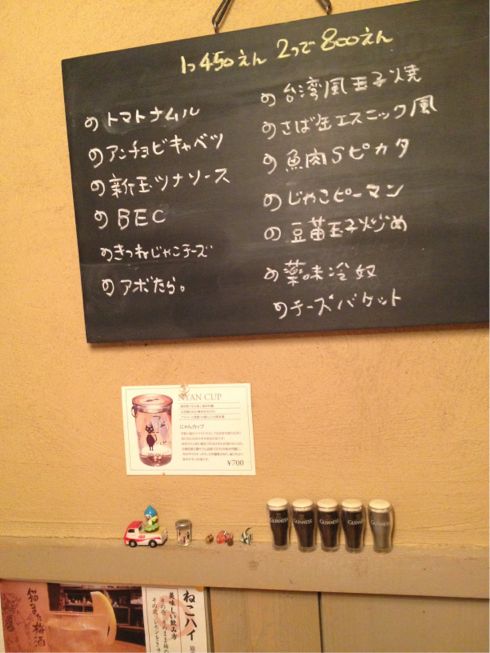 1つ450えん 2つで800えん
のトマトナムル
のアンチョビキャベツ
の新玉ツナソース
のBEC
のきつねじゃこチーズ
のアボたら。
の台湾風玉子焼
のさば缶エスニック風
の魚肉Sピカタ
のじゃこピーマン
の豆苗玉子炒め
の薬味冷奴
のチーズバケット
NYAN CUP
にゃんカップ
¥700
GUINNESS
GUINNESS
GUINNESS
GUINNESS
GUINNESS
猫また梅酒
ねこハイ
美味しい飲み方